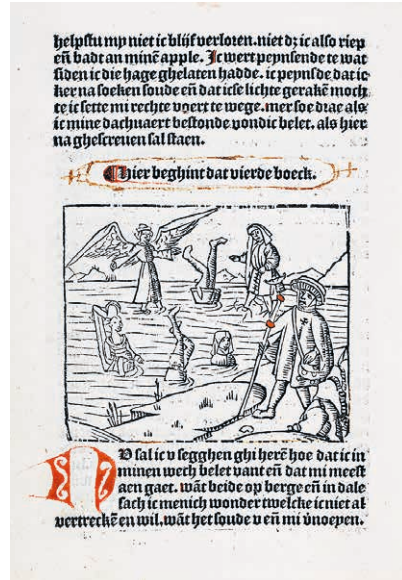 helpstu my niet ic blijf verloren. niet dz ic also riep
eñ badt an minē apple. Ic wert peynsende te wat
siden ic die hage ghelaten hadde. ic peynsde dat ic
her na soeken soude eñ dat icse lichte gerakē moch
te ic sette mi rechte voert te wege. mer soe drae als
ic mine dachuaert bestonde vondic belet. als hier
na ghescreuen sal staen.
Hier beghint dat vierde boeck.
NV sal ic v segghen ghi herē hoe dat ic in
minen wech belet vant eñ dat mi meest
aen gaet. wāt beide op berge eñ in dale
sach ic menich wonder twelcke ic niet al
vertreckē en wil. wāt het soude v eñ mi v̄noeyen.